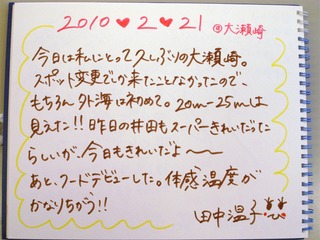 2010♥2♥21 @大瀬崎
今日は私にとって久しぶりの大瀬崎。
スポット変更でしか来たことなかったので、
もちろん外海は初めて。20m〜25mは
見えた!!昨日の井田もスーパーきれいだった
らしいが、今日もきれいだよ〜〜
あと、フードデビューした。体感温度が
かなりちがう!!
田中温子